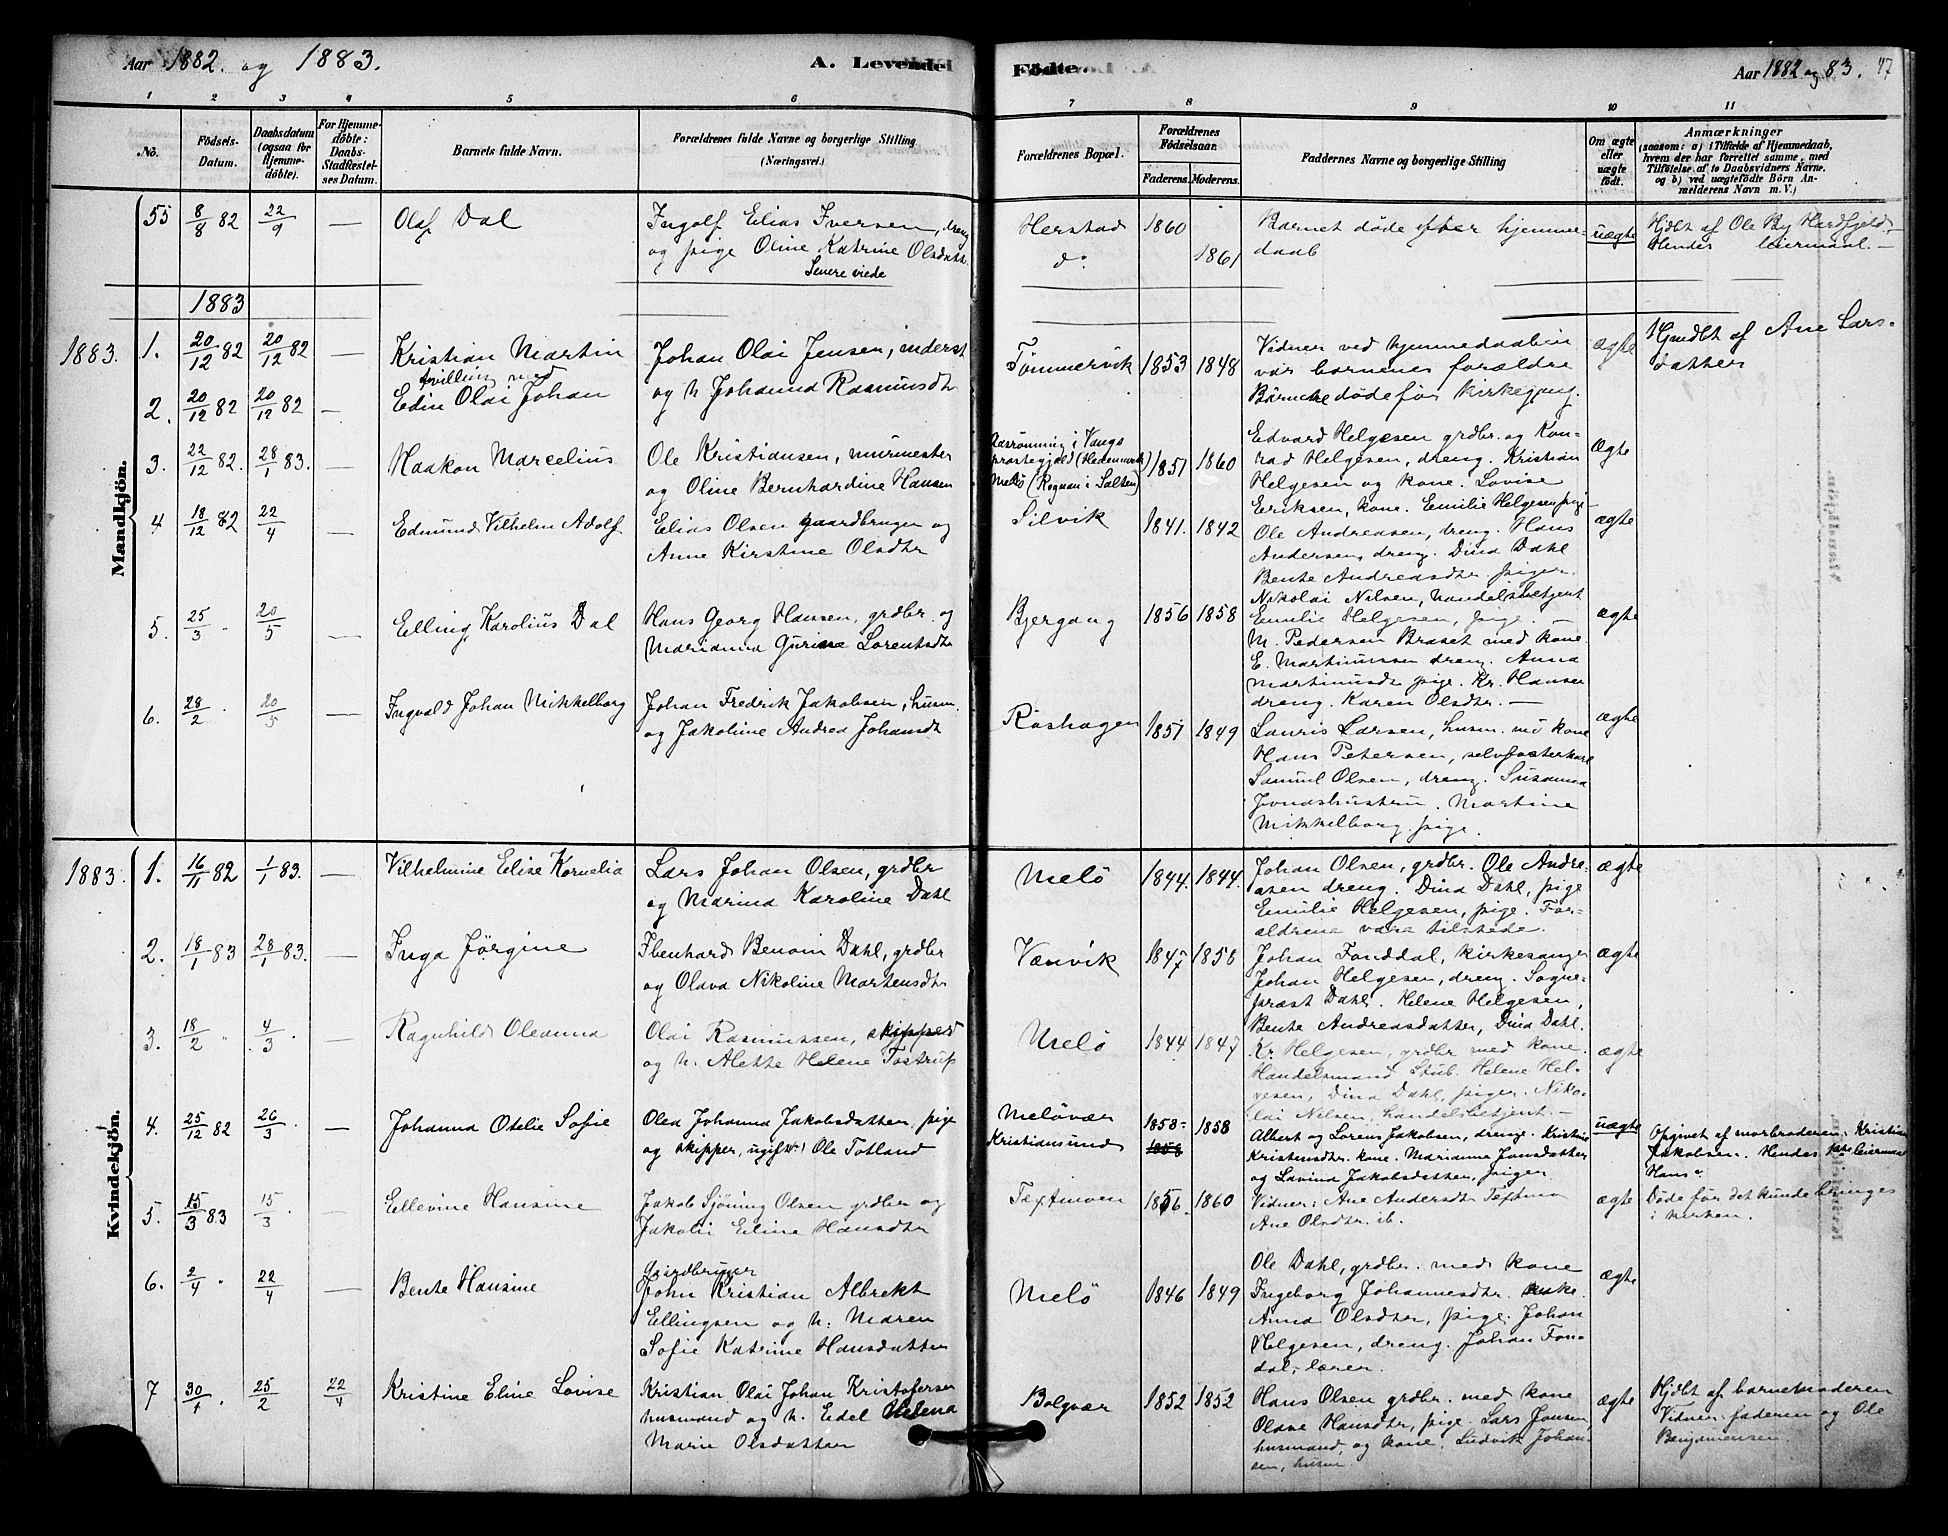 Aar 1882. og 1883.
A. Levendel
Födte.
Aar 1882 og 83. 47
1 2 3 4 5 6 7 8 9 10 11
No.
Födsels-Datum.
Daabsdatum (ogsaa for Hjemme-döbte).
For Hjemme-döbte: Daabs-Stadfæstel-ses Datum.
Barnets fulde Navn.
Forældrenes fulde Navne og borgerlige Stilling
(Næringsvei.)
Forældrenes Bopæl.
Forældrenes Födselsaar.
Faderens. Moderens.
Faddernes Navne og borgerlige Stilling
Om ægte eller uægte födt.
Anmærkninger
(saasom: a) i Tilfælde af Hjemmedaab,
hvem der har forrettet samme, med
Tilföielse af to Daabsvidners Navne,
og b) ved uægtefödte Börn An-
melderens Navn m. V.)
Mandkjön.
55 8/8 82 22/9 — Olaf Dal
Ingolf Elias Iversen, dreng
og pige Oline Katrine Olsdatt.
Senere viede
Herstad 1860
do 1861
Barnet döde efter hjemme-
daab
uægte
Hjdbt af Ole By Hardfjeld.
Hendes leiermaal. —
1883
1883. 1. 20/12 82 20/12 82 — Kristian Martin
tvilling med
2. 20/12 82 20/12 82 — Edin Olai Johan
Johan Olai Jensen, inderst
og h Johanna Rasmusdtr
Tömmervik 1853 1848
Vidner ved hjemmedaaben
var barnenes forældre
Börnene döde för kirkegang.
ægte
Hjmdbt af Ane Lars-
datter
3. 22/12 82. 28/1 83. — Haakon Marcelius
Ole Kristiansen, murmester
og Oline Bernhardine Hansen
Aasrönning i Vangs
præstegjæld (Hedemark)
Melö (Rognan i Salten)
1851 1860
Edvard Helgesen grdbr. og Kon-
rad Helgesen, dreng. Kristian
Helgesen og kone. Lovise
Eriksen, kone. Emilie Helgesen pige
Ægte
4 18/12 82 22/4 — Edmund Vilhelm Adolf
Elias Olsen gaardbruger og
Anne Kirstine Olsdtr
Silvik 1841. 1842
Ole Andreasen, dreng. Hans
Andersen, dreng. Dina Dahl
Bente Andreasdtr piger.
Nikolai Nilsen, handelsbetjent
ægte
5. 25/3 . 20/5 — Elling Karolius Dal
Hans Georg Hansen, grdbr. og
Marianna Gurine Lorentsdtr
Bjergang 1856 1858
Emilie Helgesen, pige. —
M. Pedersen Braset med kone
E. Martinussen dreng. Anna
Martinusdt pige. Kr. Hansen
dreng. Karen Olsdtr. —
ægte
6. 28/2 . 20/5 — Ingvald Johan Mikkelborg
Johan Fredrik Jakobsen, husm.
og Jakobine Andrea Johansdt
Röshagen 1851 1849
Lauris Larsen, husm. med kone
Hans Petersen, selvfosterkarl
Samuel Olsen, dreng. Susanna
Jonashustru. Martine
Mikkelborg. pige.
ægte
Kvindekjön.
1883. 1. 16/11 82 1/1 83. — Vilhelmine Elise Kornelia
Lars Johan Olsen, grdbr
og Marina Karoline Dahl
Melö 1844. 1844.
Johan Olsen, grdbr. Ole Andre-
asen dreng. Dina Dahl, pige
Emilie Helgesen, pige. For-
ældrene vare tilstede.
ægte
2. 18/1 83 28/1 83. — Inga Jörgine
Ebenhard Benoni Dahl, grdbr
og Olava Nikoline Mortensdtr
Vænvik 1847 1858
Johan Fonddal, kirkesanger
Johan Helgesen, dreng. Sogne-
præst Dahl. Helene Helgesen,
Bente Andreasdatter, Dina Dahl.
ægte
3. 18/2 " 4/3 . — Ragnhild Oleanna
Olai Rasmussen, skipper
og h. Alette Helene Tostrup
Melö 1844 1847
Kr. Helgesen, grdbr med kone.
Handelsmand Stub. Helene Hel-
gesen, Dina Dahl, piger. Niko-
lai Nilsen, handelsbetjent. —
ægte
4. 25/12 82 26/3 — Johanna Otelie Sofie
Olea Johanna Jakobsdatter, pige
og skipper, ugift Ole Totland
Melövær 1858
Kristiansund 1858
Albert og Lorens Jakobsen, dreng. Kristine
Kristensdtr. kone. Marianna Jonsdatter
og Lavina Jakobsdatter, piger
uægte
Opgivet af morbroderen: Kristian
Jakobsen. Hendes 1ste leiermaal
Hans
5. 15/3 83 15/3 . — Ellevine Hansine
Jakob Sjöning Olsen grdbr og
Jakobi Eline Hansdtr
Textmoen 1856. 1860
Vidner: Ane Andersdtr Textmo
Ane Olsdtr. ib.
ægte
Döde för det kunde bringes
i kirken.
6. 2/4 " 22/4 — Bente Hansine
Gaardbruger
John Kristian Albrekt
Ellingsen og h. Maren
Sofie Katrine Hansdatter
Melö 1846 1849
Ole Dahl, grdbr. med kone
Ingeborg Johannesdtr.
Anna Olsdtr, pige. Johan
Helgesen, dreng. Johan Fon-
dal, lærer.
ægte
7 30/1 . 25/2 22/4 Kristine Eline Lovise
Kristian Olai Johan Kristofersen
husmand og h. Edel Helena
Marie Olsdatter
Bolgvær 1852 1852
Hans Olsen grdbr. med kone
Olave Hansdtr, pige. Lars Jonsen,
husmand, og kone. Ludvik Johan-
sen, husm
ægte
Hjdbt af barnemoderen
Vidner: faderen og Ole
Benjaminsen.